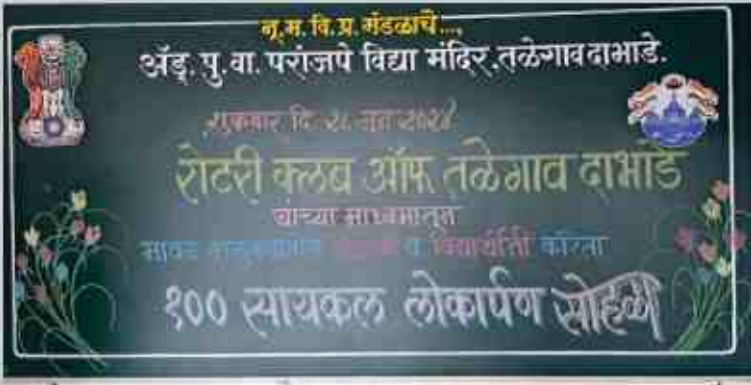 नू.म.वि.प्र.मंडळाचे...,
ॲड्. पु.वा. परांजपे विद्या मंदिर,तळेगाव दाभाडे.
शुक्रवार दि. २८ जून २०२४
रोटरी क्लब ऑफ तळेगाव दाभाडे
यांच्या माध्यमातून
मावळ व विद्यार्थीनी करिता
१०० सायकल लोकार्पण सोहळा